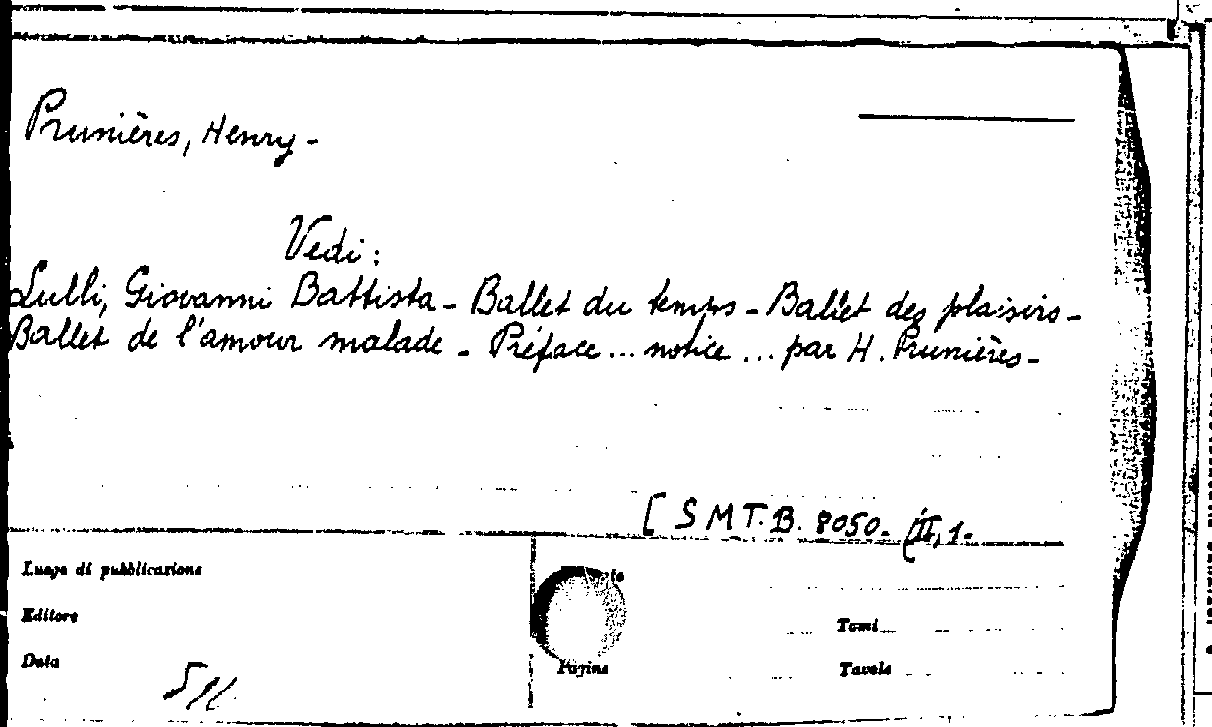 Prunières, Henry -
Vedi :
Lulli, Giovanni Battista - Ballet du temps - Ballet des plaisirs -
Ballet de l'amour malade - Préface ... notice ... par H. Prunières -
[ S M T. B. 8050. (II, 1.
Luogo di pubblicazione
Editore
Tomi
Data
Pagine
Tavole